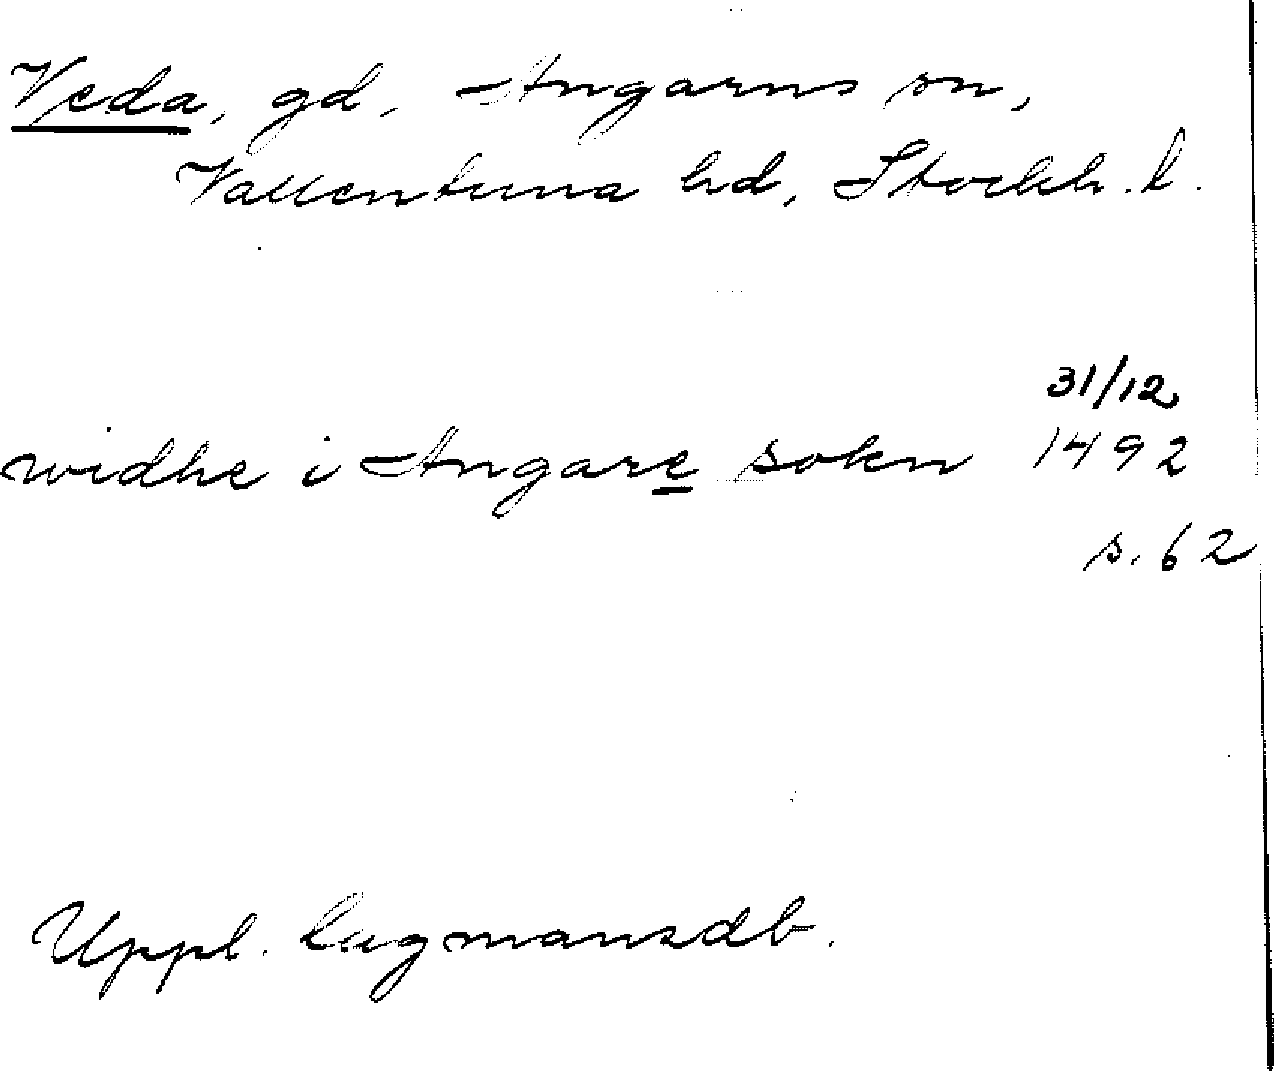 Veda, gd, Angarns sn,
Vallentuna hd, Stockh. l.
31/12
widhe i Angare sokn 1492
s. 62
Uppl. lagmansdb.